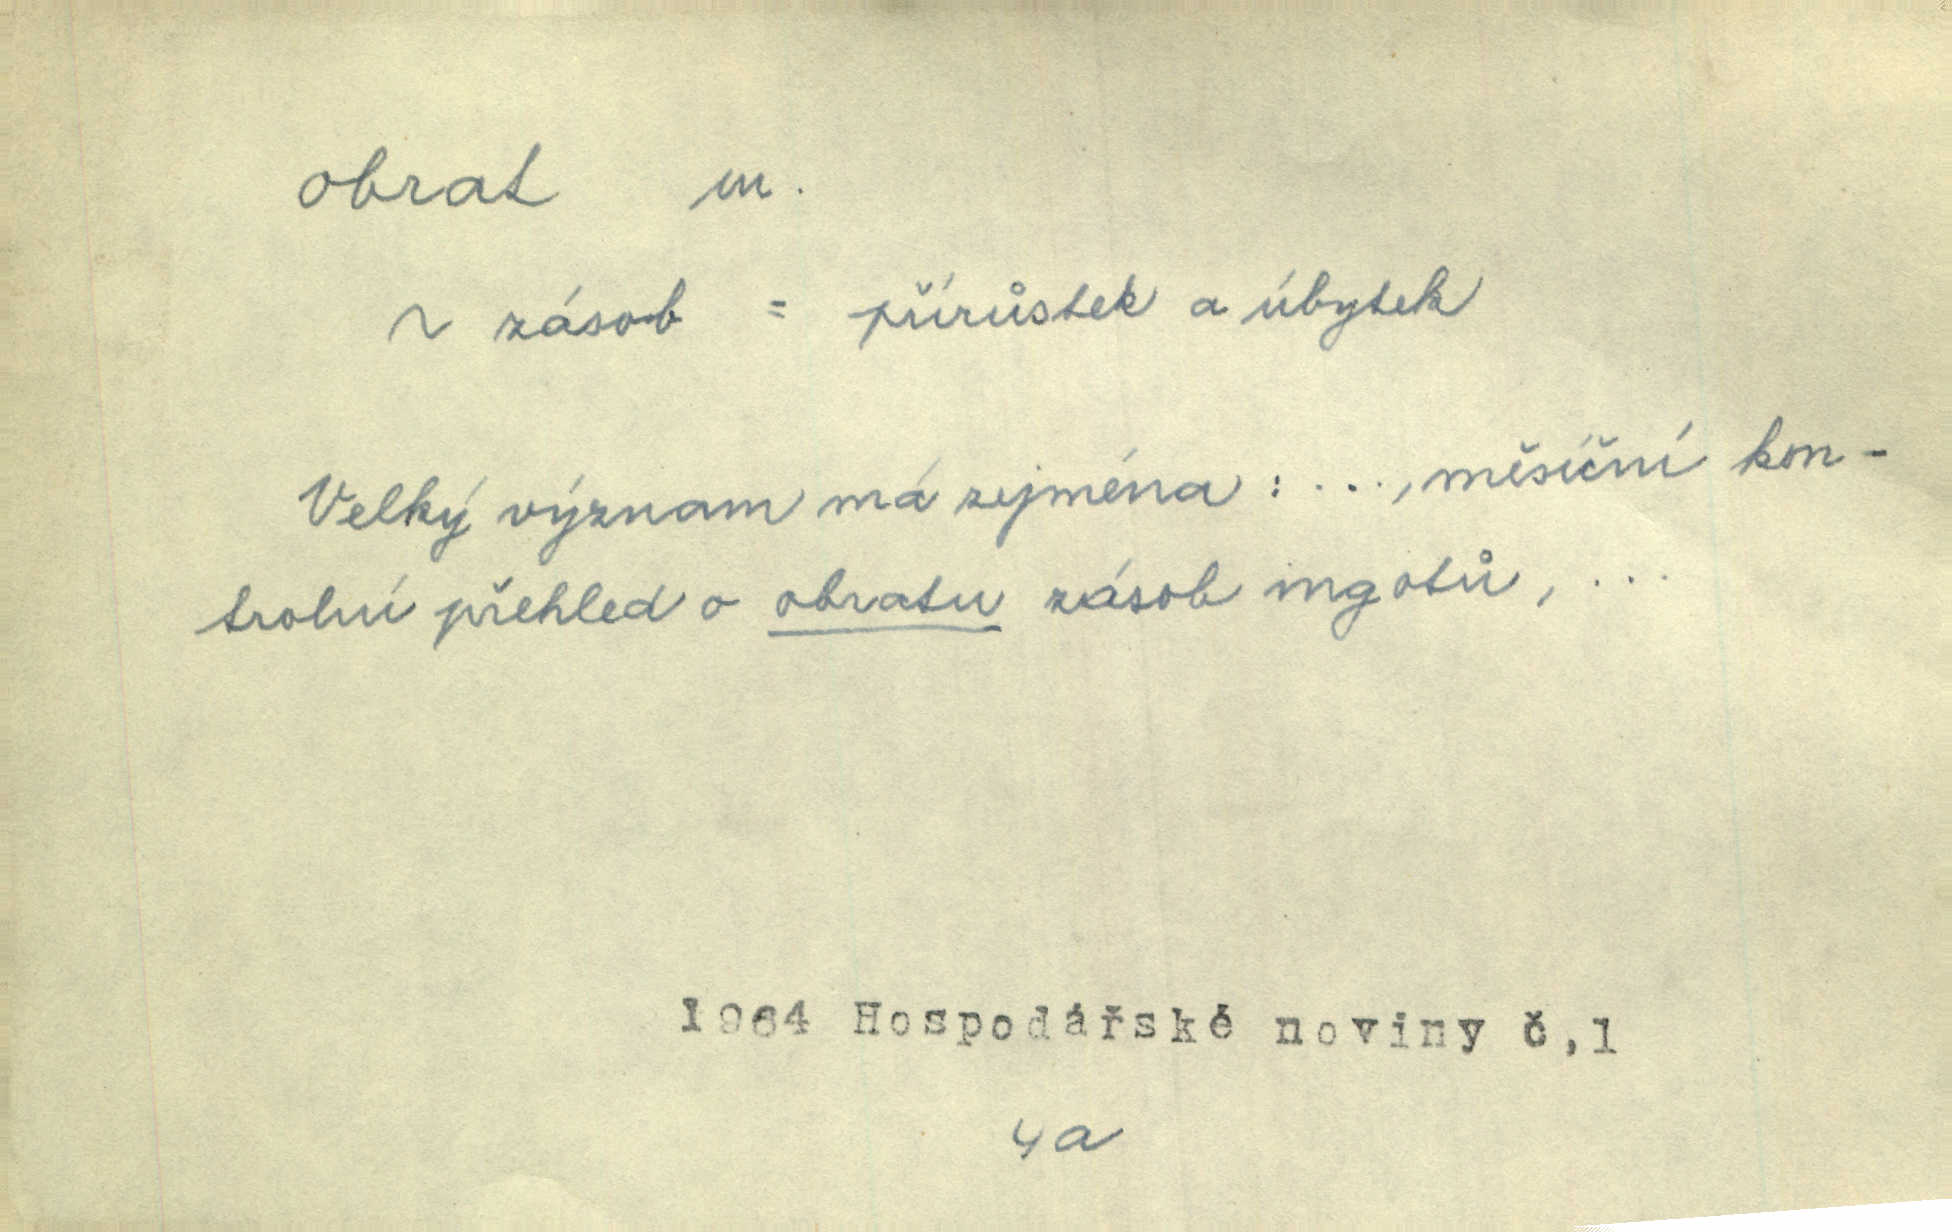 obrat m.
~ zásob = přírůstek a úbytek
Velký význam má zejména : ..., měsíční kon-
trolní přehled o obratu zásob ingotů, ...
1964 Hospodářské noviny č,1
4a